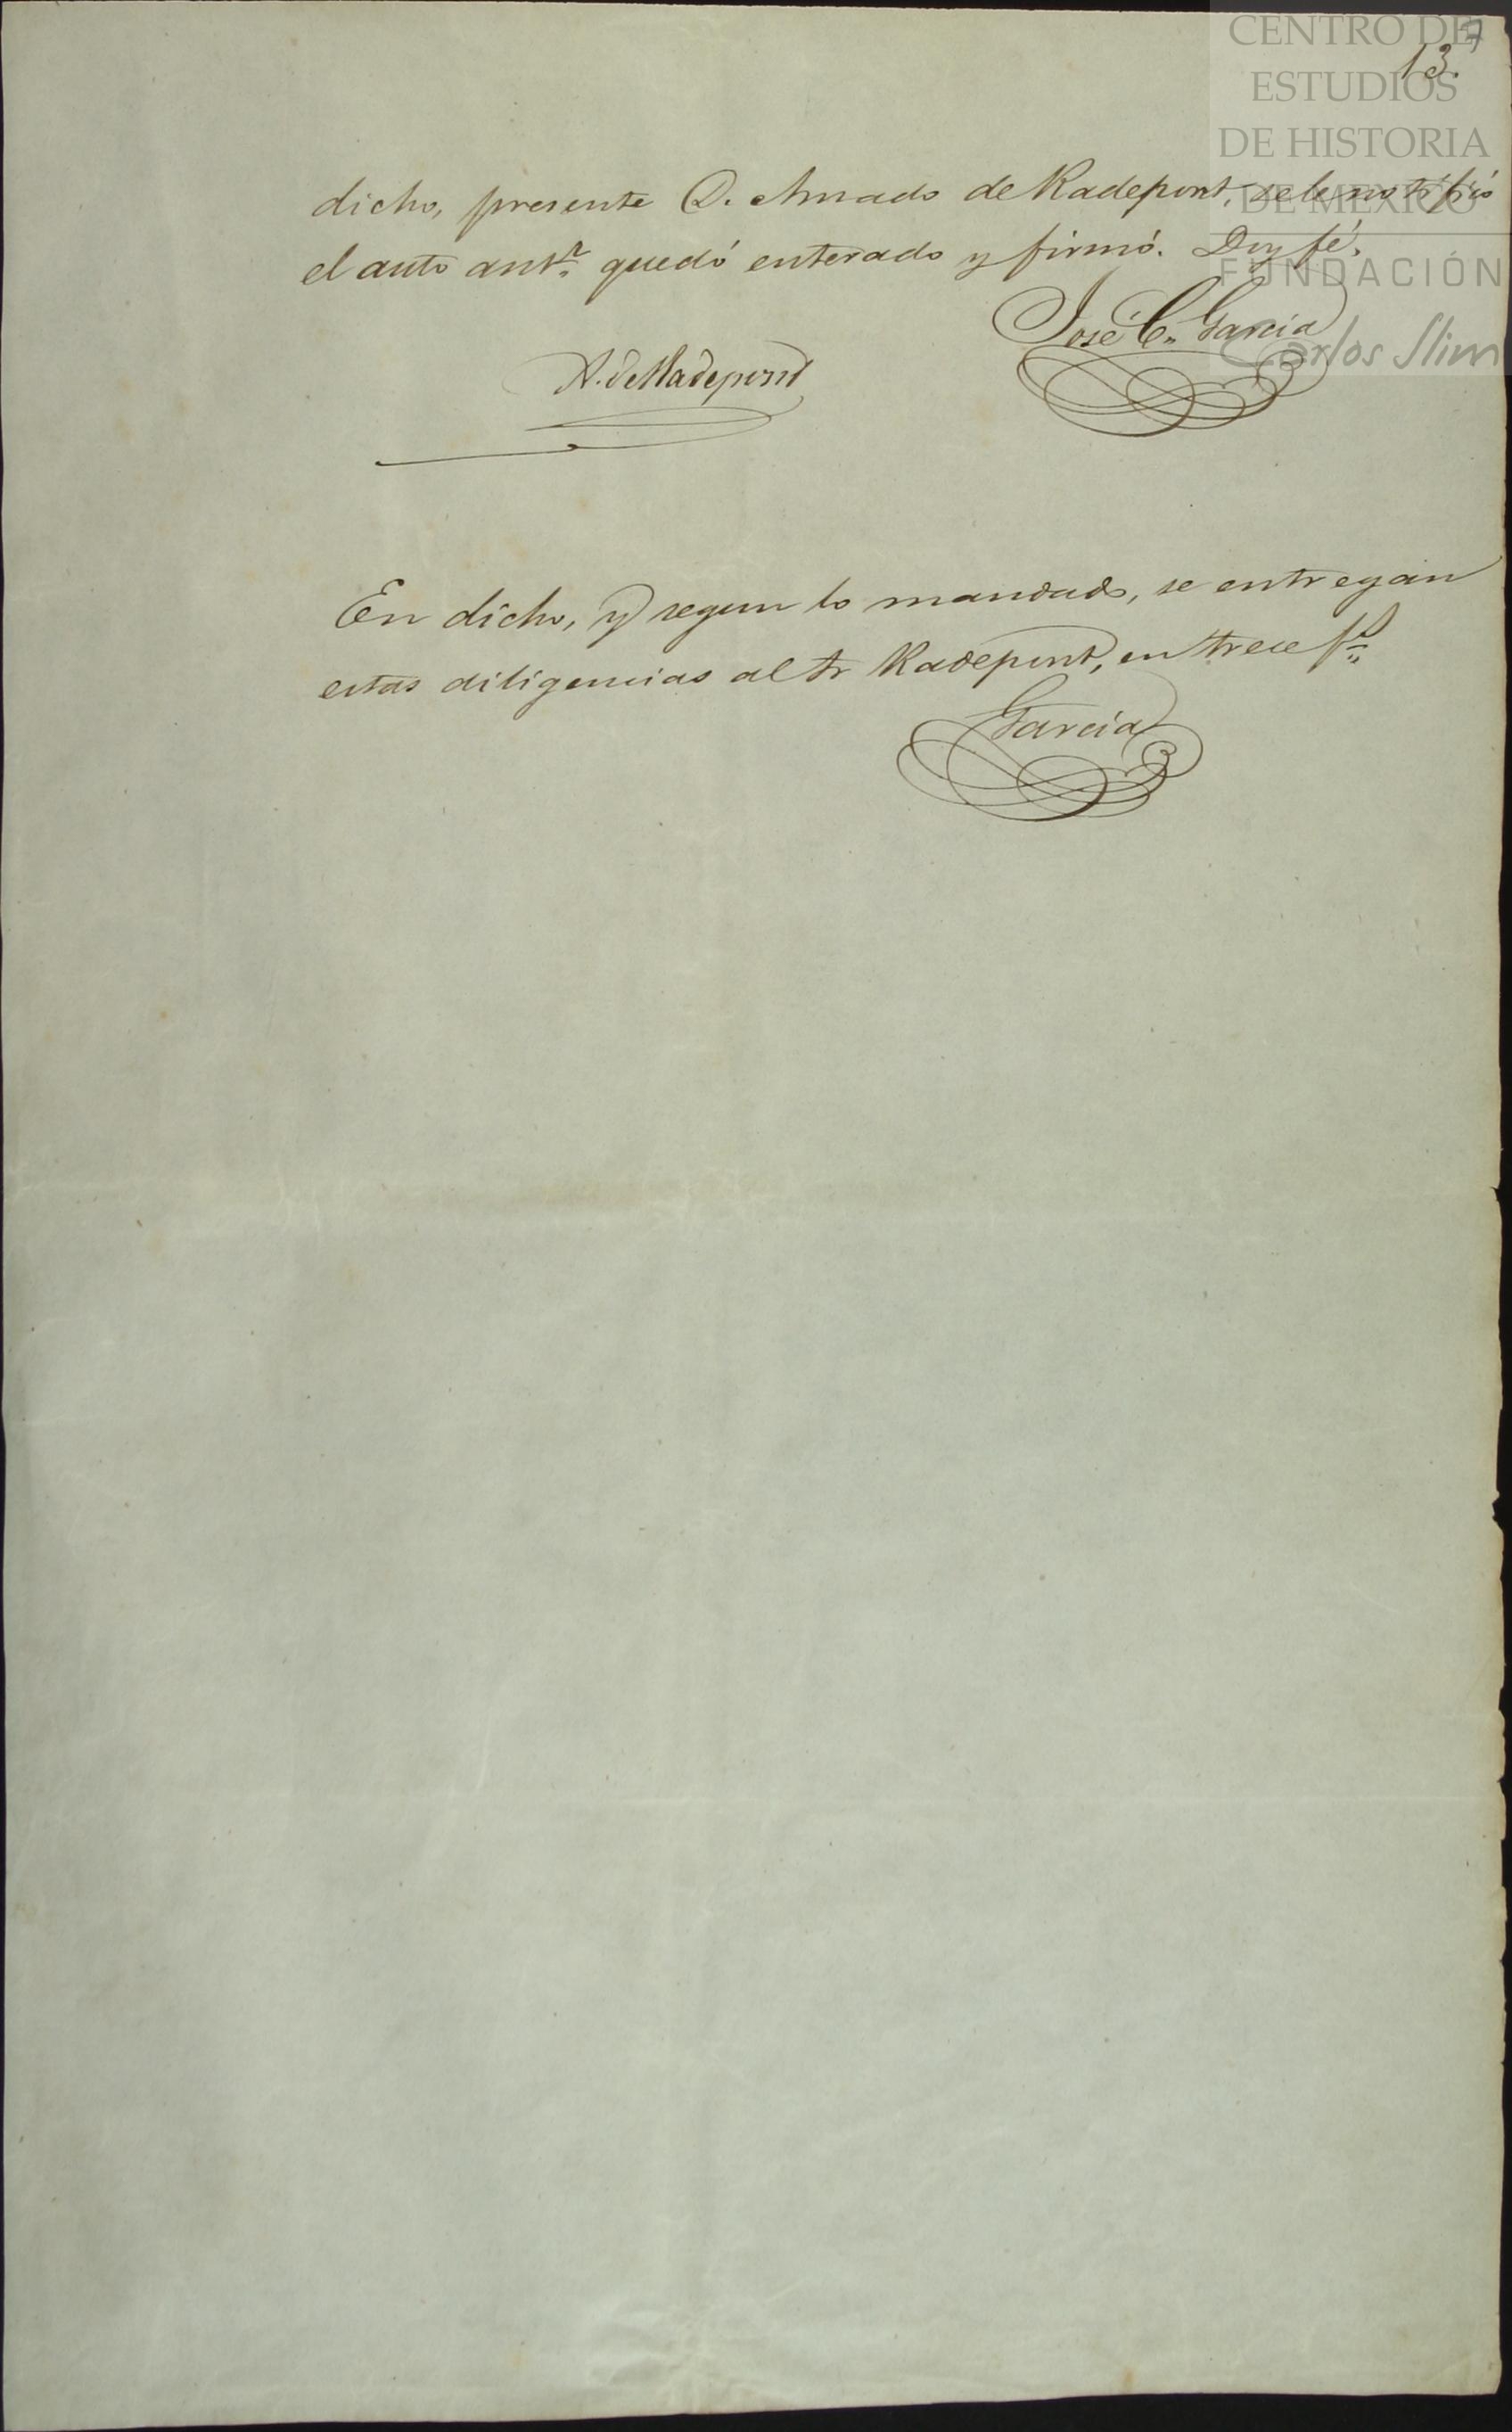 CENTRO DE
ESTUDIOS
DE HISTORIA
DE MEXICO
FUNDACIÓN
Carlos Slim
13.
dicho, presente D. Amado de Radepont, se le notificó
el auto antr. quedó enterado y firmó. Doy fé.
José C. Garcia
A. de Radepont
En dicho, y segun lo mandado, se entregan
estas diligencias al Sr Radepont, en trece fs.
Garcia